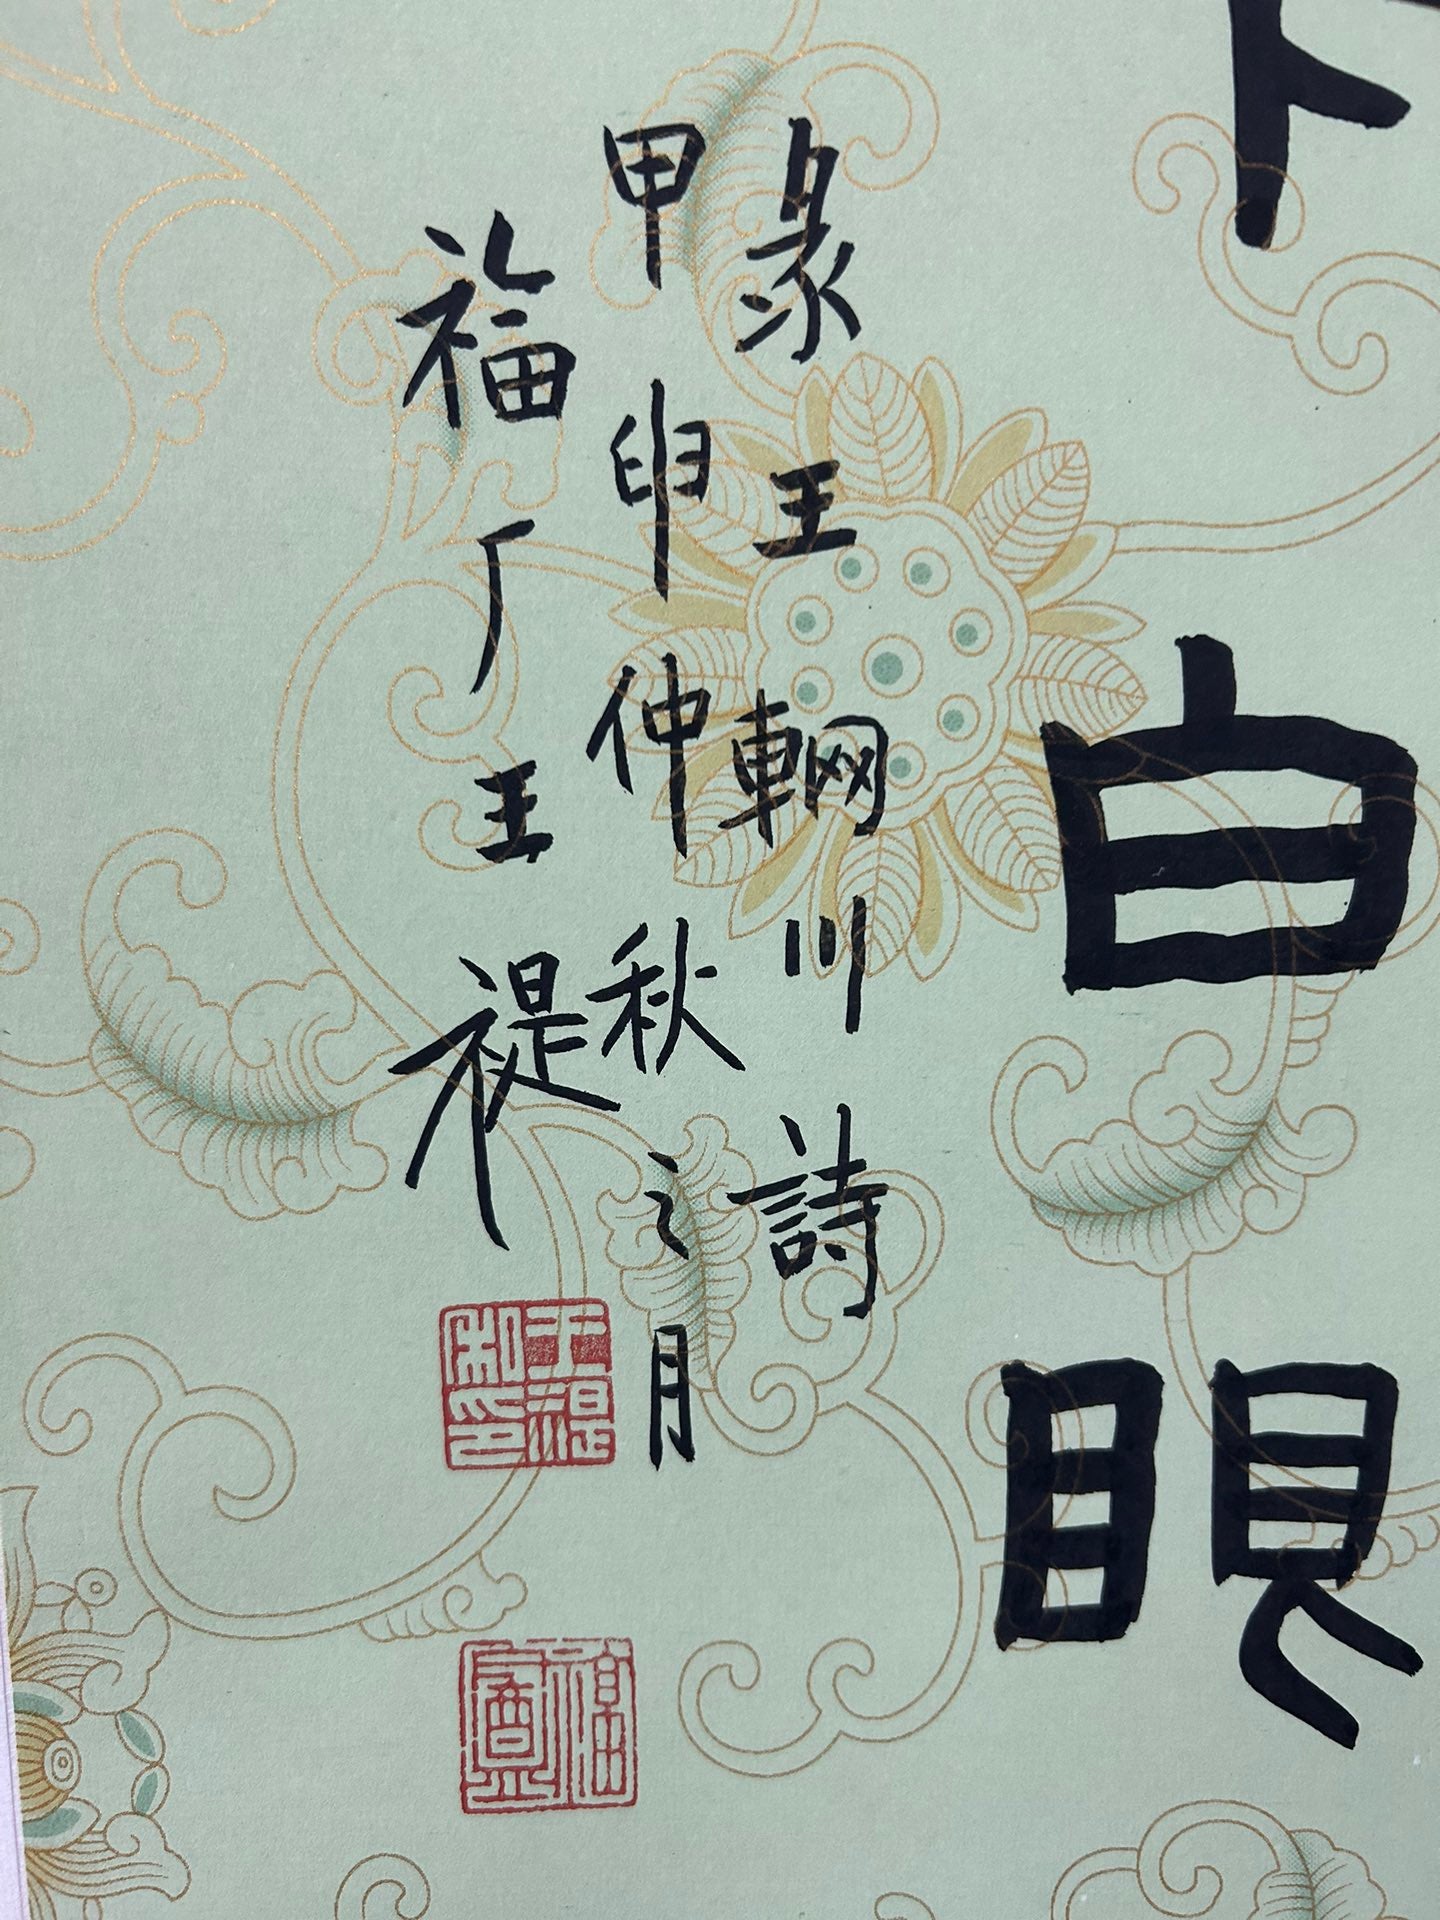 下白眼
彔王輞川詩
甲申仲秋之月
福厂王禔
王禔私印
福盦